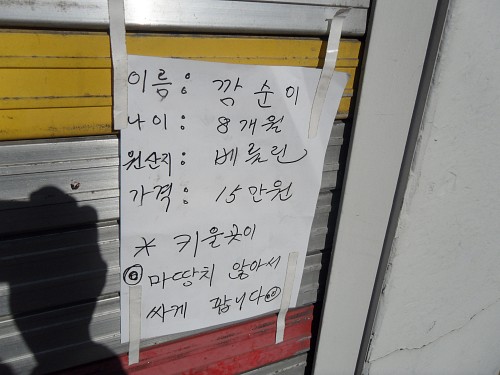 이름: 깜순이
나이: 8개월
원산지: 베를린
가격: 15만원
* 키울곳이
마땅치 않아서
싸게 팝니다